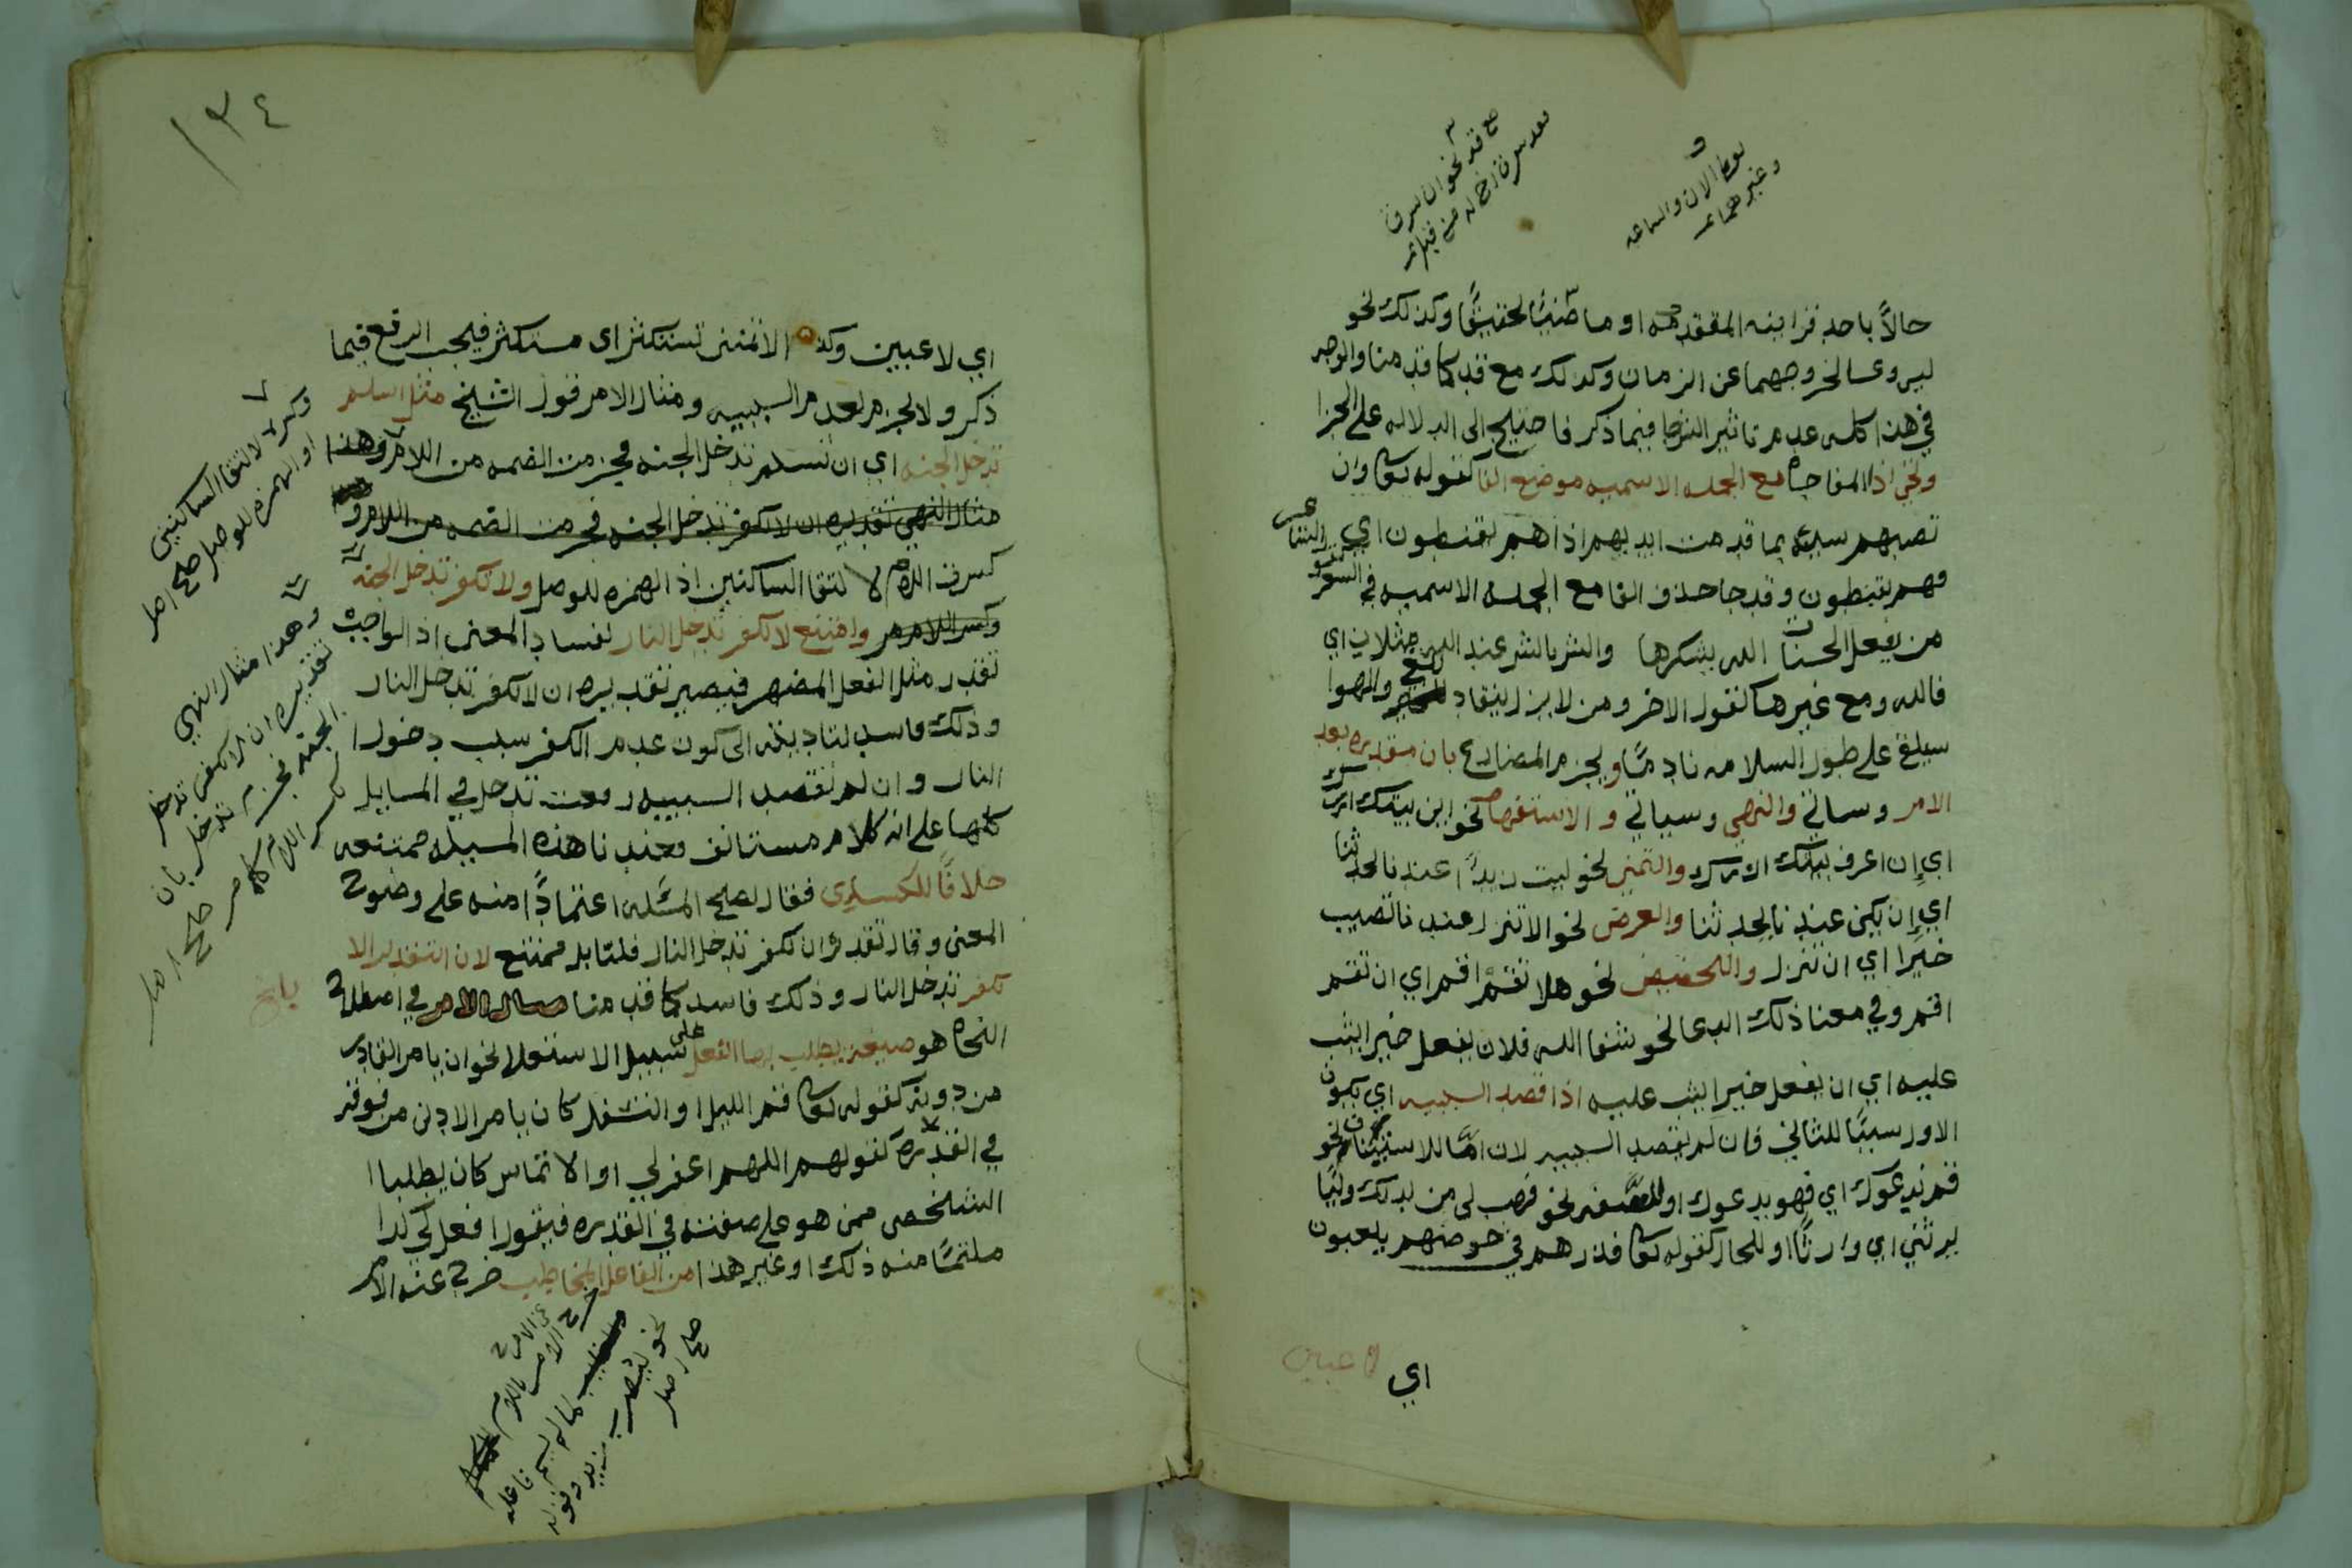 بعد سرق اخ له من قبل
مع قد نحو ان سرق
نحو الان والساعه
وغيرهما
حالاً باحد قراينه المتقدمه او ماضيًا تحقيقًا وكذلك نحو
ليس وعسا لخروجهما عن الزمان وكذلك مع قد كما قدمنا والوجه
في هذا كله عدم تاثير الشرط فيما ذكر فاحتيج الى الدلاله على الجزا
وتجي اذا المفاجاه مع الجمله الاسميه موضع الفا كقوله تعا وان
تصبهم سيئه بما قدمت ايديهم اذا هم يقنطون اي
فهم يقنطون وقد جا حذف الفا مع الجمله الاسميه في الشعر
من يفعل الحسنات الله يشكرها والشر بالشر عند الله مثلان اي
فالله ومع غيرها كقول الاخر ومن لا يزل ينقاد للغي والهوا
سيلغى على طول السلامه نادمًا ويجزم المضارع بان مقدره بعد
الامر وسياتي والنهي وسياتي والاستفهام نحو اين بيتك ازرك
اي إن اعرف بيتك ازرك والتمني نحو ليت زيدًا عندنا يحدثنا
اي إن يكن عندنا يحدثنا والعرض نحو الا تنزل عندنا تصيب
خيرا اي ان تنزل والتحضيض نحو هلا تقم اقم اي ان تقم
اقم وفي معنا ذلك الدعا نحو شفا الله فلان يفعل خيرا يثب
عليه اي ان يفعل خيرا يثب عليه اذا قصد السببيه اي يكون
الاول سببًا للثاني فان لم يقصد السببيه لان امّا للاستيناف نحو
قم يدعوك اي فهو يدعوك او للصفه نحو فهب لى من لدنك وليًا
يرثني اي وارثًا او للحال كقوله تعا فذرهم في خوضهم يلعبون
اي لاعبين
١٣٤
اي لاعبين وكذا لا تمنن تستكثر اى مستكثر فيجب الرفع فيما
ذكر ولا يجزم لعدم السببيه ومثال الامر قول الشيخ مثل اسلم
تدخل الجنه اي ان تسلم تدخل الجنه فجزمت الضمه من اللام وهذا
مثال النهي تقديره ان لا تكفر تدخل الجنه فجزمت الضمه من اللام و
كسرت اللام لالتقا الساكنين اذ الهمزه للوصل ولا تكفر تدخل الجنه
وكسر اللام وامتنع لا تكفر تدخل النار لفساد المعنى اذ الواجب
تقدر مثل الفعل المضهر فيصير تقديره ان لا تكفر تدخل النار
وذلك فاسد لتاديته الى كون عدم الكفر سبب دخول
النار وان لم تقصد السببيه رفعت تدخل في المسايل
كلها على انه كلام مستانف فعندنا هذه المسيله ممتنعه
خلافًا للكساءى فقال تصح المسئله اعتمادًا منه على وضوح
المعنى وقال تقديره ان تكفر تدخل النار قلنا بل ممتنع لان التقدير الا
تكفر تدخل النار وذلك فاسد كما قدمنا مثال الامر في اصطلاح
النحاه هو صيغة يطلب بها الفعل على سبيل الاستعلا نحو ان يامر القادر
من دونه كقوله تعا قم الليل او التسفل كان يامر الادنى من فوقه
في القدره كقولهم اللهم اغفرلي او الالتماس كان يطلب
الشخص ممن هو على صفته في القدره فيقول افعل لي كذا
ملتمسًا منه ذلك او غير هذا من الفاعل المخاطب خرج عنه الامر
وكسره لالتقا الساكنين
او الهمزه للوصل صح اصل
وهذا مثال النهي
تقديره ان لا تكفر تدخل
الجنه فجزم تدخل بان
كسر اللام كما مر صح اصل
بلغ
خرج الامر باللام
لما لم يسم فاعله
نحو ليضرب زيد وقوله
صح اصل